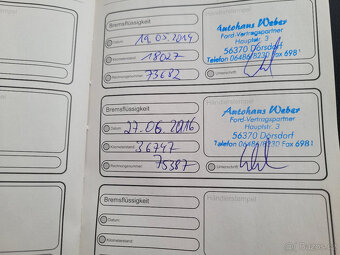 Bremsflüssigkeit
Datum 19.03.2014
Kilometerstand 18027
Rechnungsnummer 73682
Autohaus Weber
Ford-Vertragspartner
Hauptstr. 3
56370 Dörsdorf
Telefon 06486/8230 Fax 6981
Unterschrift
Bremsflüssigkeit
Datum 27.06.2016
Kilometerstand 36747
Rechnungsnummer 75387
Händlerstempel
Autohaus Weber
Ford-Vertragspartner
Hauptstr. 3
56370 Dörsdorf
Telefon 06486/8230 Fax 6981
Unterschrift
Bremsflüssigkeit
Datum
Kilometerstand
Händlerstempel